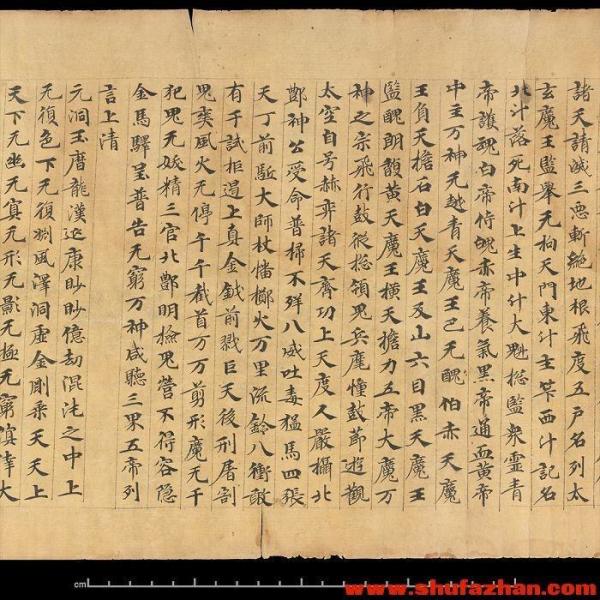 諸天請滅三惡斬絶地根飛度五戶名列太
玄魔王監舉无拘天門東斗主筭西斗記名
北斗落死南斗上生中斗大魁揔監衆靈青
帝護魂白帝侍魄赤帝養氣黑帝通血黄帝
中主万神无越青天魔王巴无醜伯赤天魔
王負天擔石白天魔王反山六目黑天魔王
監醜朗馥黄天魔王横天擔力五帝大魔万
神之宗飛行鼓從揔領鬼兵麾幢鼓莭遊觀
太空自号赫弈諸天齊功上天度人嚴攝北
酆神公受命普掃不祥八威吐毒猛馬四張
天丁前駈大師杖幡擲火万里流鈴八衝敢
有干試拒遏上真金鉞前戮巨天後刑屠割
鬼爽風火无停千千截首万万剪形魔无干
犯鬼无妖精三官北酆明檢鬼營不得容隱
金馬驛呈普告无窮万神咸聽三界五帝列
言上清
元洞玉曆龍漢延康眇眇億劫混沌之中上
无復色下无復渕風澤洞虚金剛乘天天上
天下无幽无冥无形无影无極无窮溟涬大
cm
www.shufazhan.com